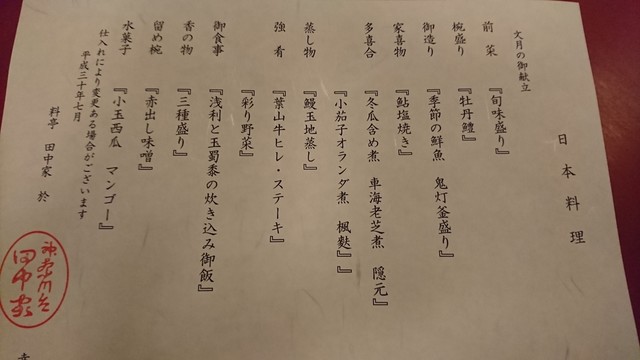 日本料理
文月の御献立
前菜 『旬味盛り』
椀盛り 『牡丹鱧』
御造り 『季節の鮮魚 鬼灯釜盛り』
家喜物 『鮎塩焼き』
多喜合 『冬瓜含め煮 車海老芝煮 隠元』
『小茄子オランダ煮 楓麩』』
蒸し物 『鰻玉地蒸し』
強肴 『葉山牛ヒレ・ステーキ』
『彩り野菜』
御食事 『浅利と玉蜀黍の炊き込み御飯』
香の物 『三種盛り』
留め椀 『赤出し味噌』
水菓子 『小玉西瓜 マンゴー』
仕入れにより変更ある場合がございます
平成三十年七月
料亭 田中家 於
神奈川台
田中家